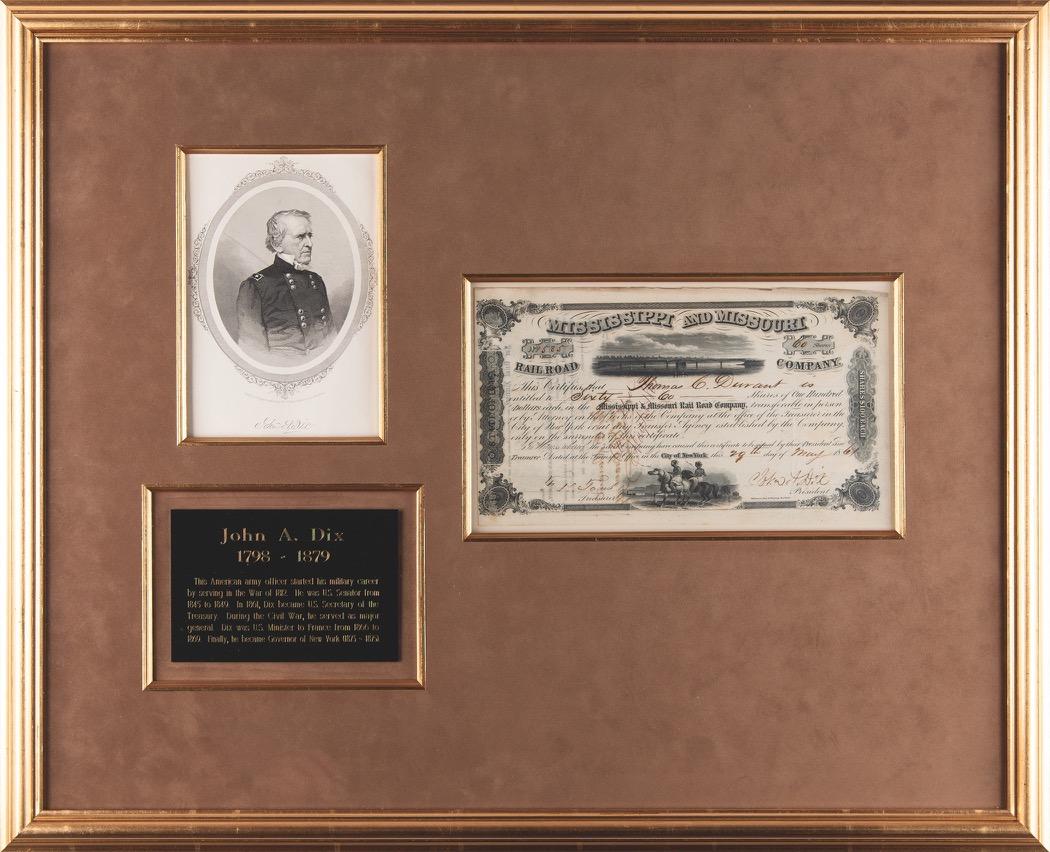 John A. Dix
1798 - 1879
This American army officer started his military career
by serving in the War of 1812. He was U.S. Senator from
1845 to 1849. In 1861, Dix became U.S. Secretary of the
Treasury. During the Civil War, he served as major
general. Dix was U.S. Minister to France from 1866 to
1869. Finally, he became Governor of New York (1873 - 1875)
MISSISSIPPI AND MISSOURI
60 Shares
RAIL ROAD COMPANY.
This Certifies that Thomas C. Durant is
entitled to Sixty 60 Shares of One Hundred
dollars each, in the Mississippi & Missouri Rail Road Company, transferable in person
or by Attorney on the books of the Company at the office of the Treasurer in the
City of New York or at any Transfer Agency established by the Company
only on the surrender of this certificate.
In Witness whereof the said Company have caused this certificate to be signed by their President and
Treasurer. Dated at the Transfer Office in the City of New York, this 29th day of May
SHARES $100 EACH
John A. Dix
President